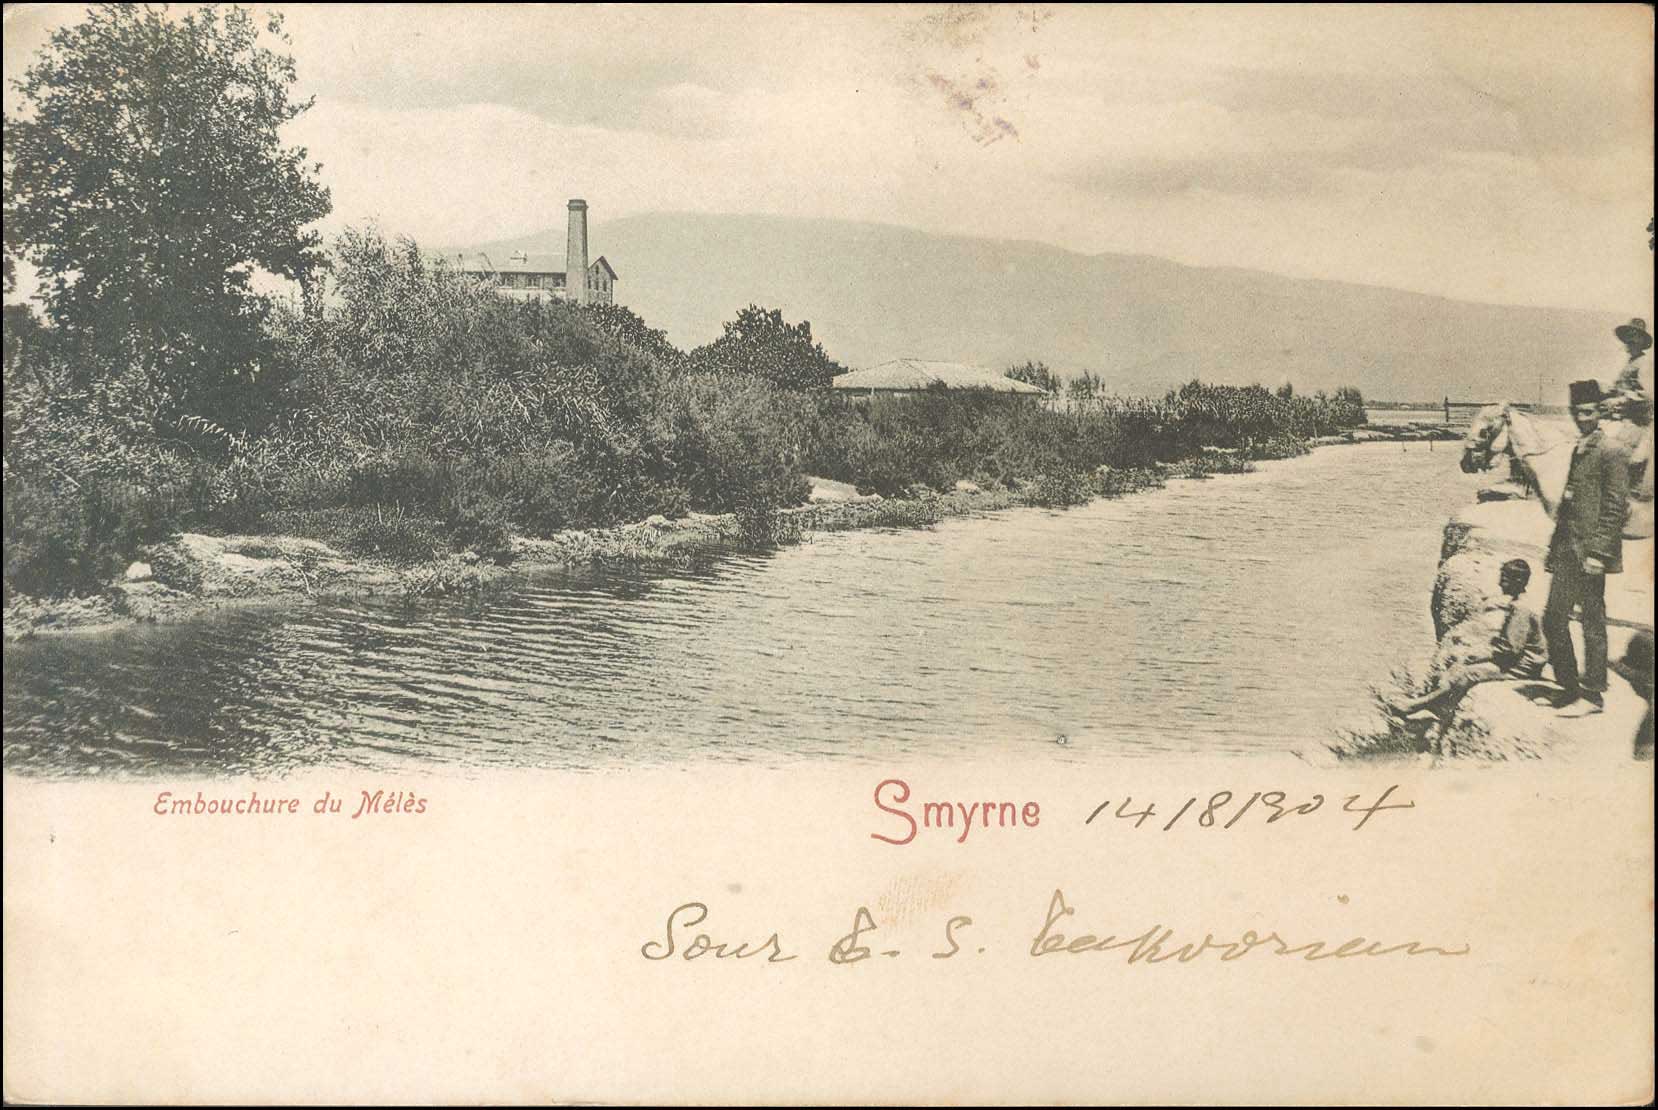 Embouchure du Mélès
Smyrne 14/8/1904
Sour E. S. Takvorian